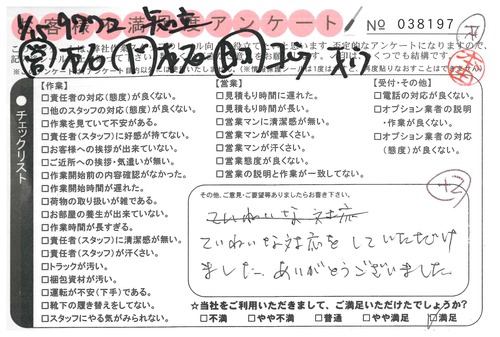 お客様満足度アンケート
No 038197
チェックリスト
【作業】
□責任者の対応(態度)が良くない。
□他のスタッフの対応(態度)が良くない。
□作業を見ていて不安がある。
□責任者(スタッフ)に好感が持てない。
□お客様への挨拶が出来ていない。
□ご近所への挨拶・気遣いが無い。
□作業開始前の内容確認がなかった。
□作業開始時間が遅れた。
□荷物の取り扱いが雑である。
□お部屋の養生が出来ていない。
□作業時間が長すぎる。
□責任者(スタッフ)に清潔感が無い。
□責任者(スタッフ)が汗くさい。
□トラックが汚い。
□梱包資材が汚い。
□運転が不安(下手)である。
□靴下の履き替えをしてない。
□スタッフにやる気がみられない。
【営業】
□見積もり時間に遅れた。
□見積もり時間が長い。
□営業マンに清潔感が無い。
□営業マンが煙草くさい。
□営業マンが汗くさい。
□営業態度が良くない。
□営業の説明と作業が一致してない。
【受付・その他】
□電話の対応が良くない。
□オプション業者の説明
・作業が良くない。
□オプション業者の対応
(態度)が良くない。
その他、ご意見・ご要望等ありましたらお書き下さい。
ていねいな対応
ていねいな対応をしていただけ
ました。ありがとうございました。
☆当社をご利用いただきまして、ご満足いただけたでしょうか?
□不満 □やや不満 □普通 □やや満足 □満足